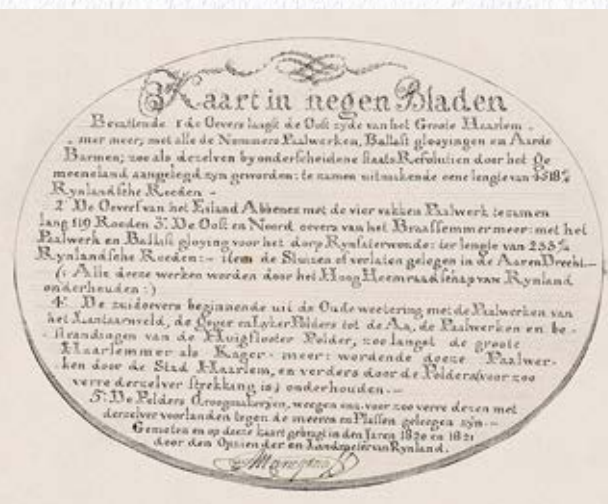 Kaart in negen Bladen
Bevattende 1 de Oevers langst de Oost zyde van het Groote Haarlem-
mer meer; met alle de Nommers Paalwerken, Ballast glooyingen en Aarde
Barmen; zoo als dezelven by onderscheidene Staats Resolutien door het Ge
meeneland aangelegd zyn geworden: te zamen uitmakende eene lengte van
Rynlandsche Roeden -
2° De Oevers van het Eiland Abbenes met de vier vakken Paalwerk te zamen
lang 119 Roeden 3° De Oost en Noord oevers van het Braassemmermeer: met het
Paalwerk en Ballast gloying voor het dorp Rynsaterwoude: ter lengte van 233
Rynlandsche Roeden:- item de Sluizen of verlaten gelegen in de Aaren Drecht.-
(: Alle deeze werken worden door het Hoog Heemraadschap van Rynland
onderhouden :)
4° De zuidoevers beginnende uit de Oude weetering met de Paalwerken van
het Lantaarnveld, de Gover en Lyker Polders tot de Aa, de Paalwerken en be-
strandingen van de Huigsloster Polder, zoo langst de groote
Haarlemmer als Kager-meer: wordende deeze Paalwer-
ken door de Stad Haarlem, en verders door de Polders (voor zoo
verre derzelver strekking is) onderhouden.-
5° De Polders droogmakerijen, weegen enz. voor zoo verre dezen met
derzelver voorlanden tegen de meeren en Plassen geleegen zyn.-
Gemeten en op deeze kaart gebragt in den Jaren 1820 en 1821
door den Opziender en Landmeter van Rynland.